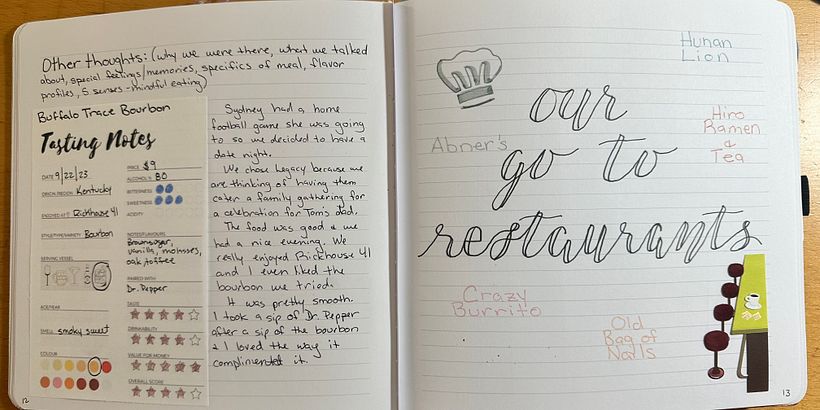 Other thoughts: (why we were there, what we talked
about, special feelings/memories, specifics of meal, flavor
profiles, 5 senses - mindful eating)
Buffalo Trace Bourbon
Tasting Notes
DATE 9/22/23
ORIGIN/REGION Kentucky
ENJOYED AT Rickhouse 41
STYLE/TYPE/VARIETY Bourbon
SERVING VESSEL
AGE/YEAR
SMELL smoky sweet
COLOUR
PRICE $9
ALCOHOL % 80
BITTERNESS
SWEETNESS
ACIDITY
NOTES/FLAVOURS
Brown sugar,
vanilla, molasses,
oak toffee
PAIRED WITH
Dr. Pepper
TASTE
DRINKABILITY
VALUE FOR MONEY
OVERALL SCORE
Sydney had a home
football game she was going
to so we decided to have a
date night.
We chose Legacy because we
are thinking of having them
cater a family gathering for
a celebration for Tom's dad.
The food was good & we
had a nice evening. We
really enjoyed Rickhouse 41
and I even liked the
bourbon we tried.
It was pretty smooth.
I took a sip of Dr. Pepper
after a sip of the bourbon
& I loved the way it
complimented it.
12
Hunan
Lion
our
Abner's
go to
Hiro
Ramen
&
Tea
restaurants
Crazy
Burrito
Old
Bag of
Nails
13